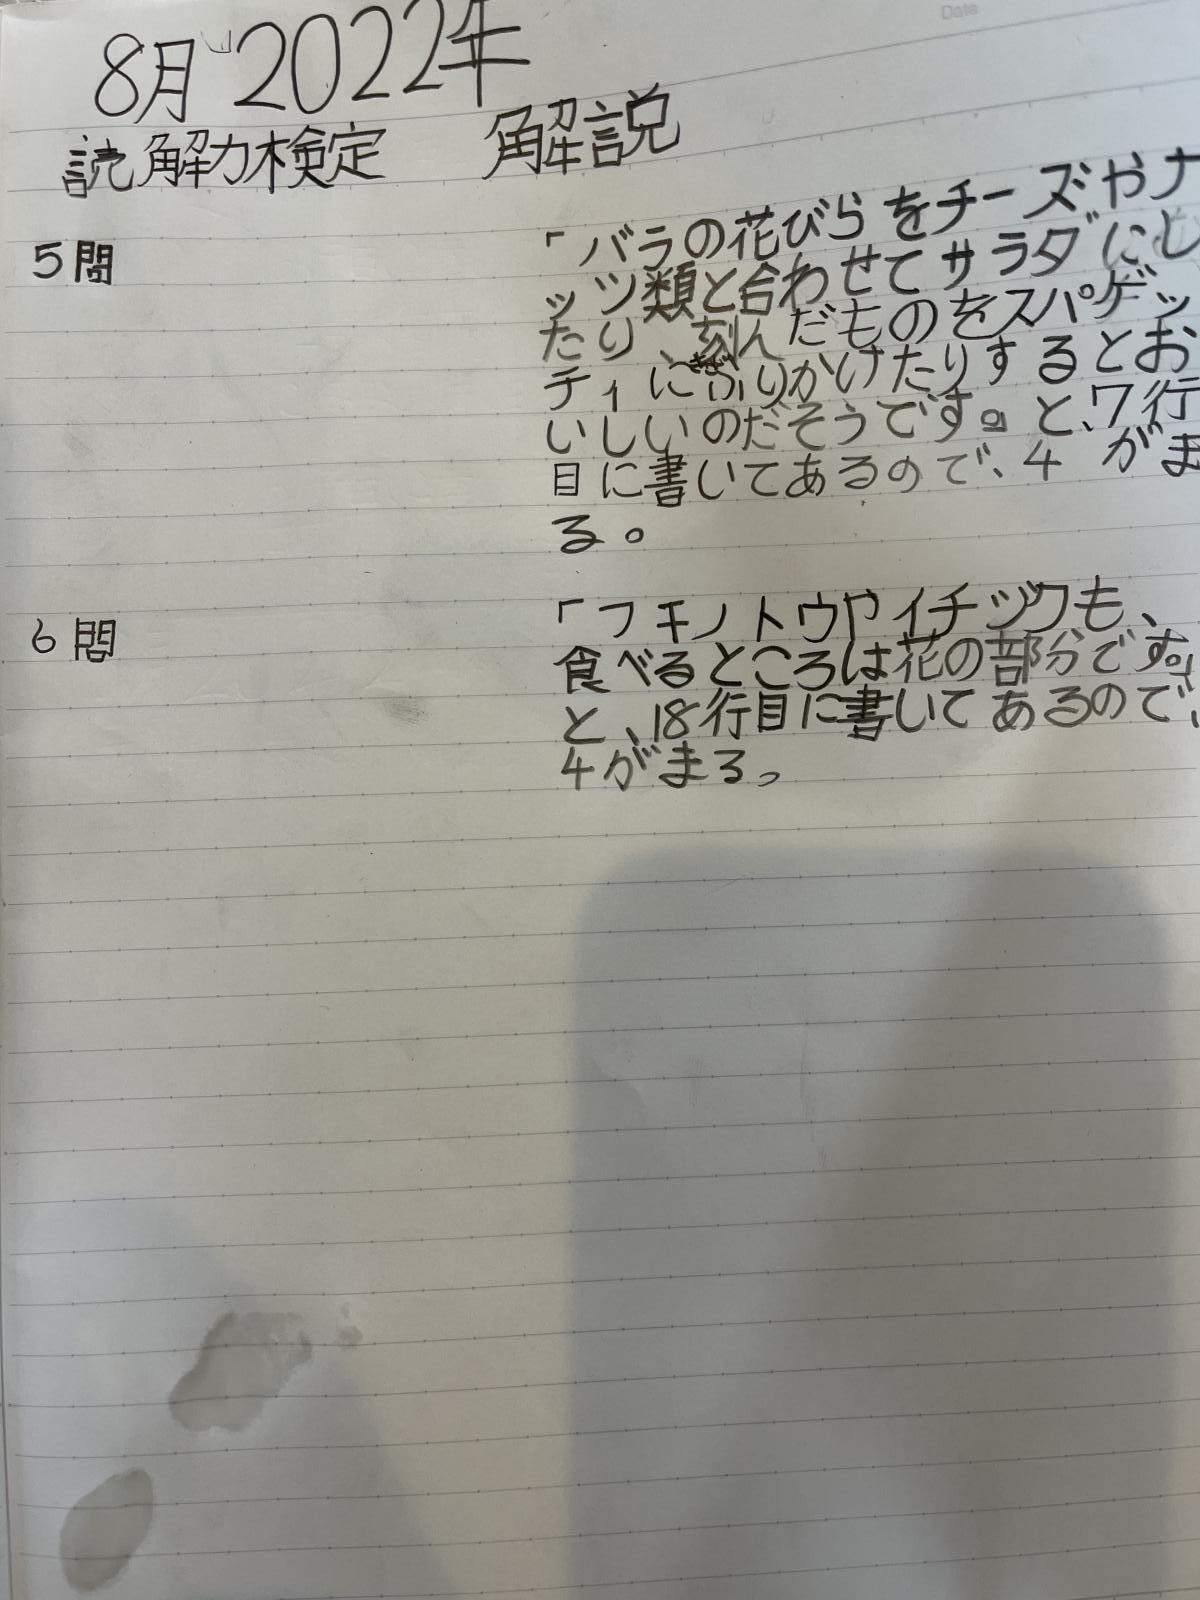 Date
8月 2022年
読解力検定 解説
5問
「バラの花びらをチーズやナ
ッツ類と合わせてサラダにし
たり、刻んだものをスパゲッ
きざ
ティにふりかけたりするとお
いしいのだそうです。」と、7行
目に書いてあるので、4 がま
る。
6問
「フキノトウやイチジクも、
食べるところは花の部分です。」
と、18行目に書いてあるので、
4がまる。